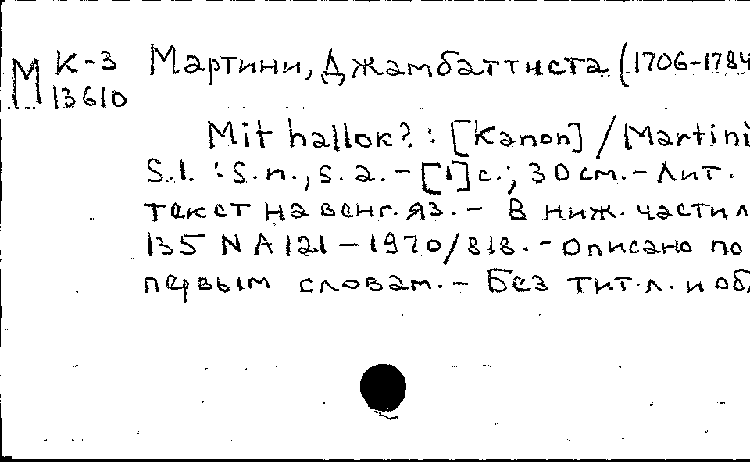 М К-3 Мартини, Джамбаттиста (1706-1784
13610
Mit hallok? : [Kanon] / Martini
S.l. : S.n., s.a. - [1] с.; 30 см. - Лит.
текст на венг. яз. - В ниж. части л
135 N A 121 - 1970/818. - Описано по
первым словам. - Без тит. л. и обл